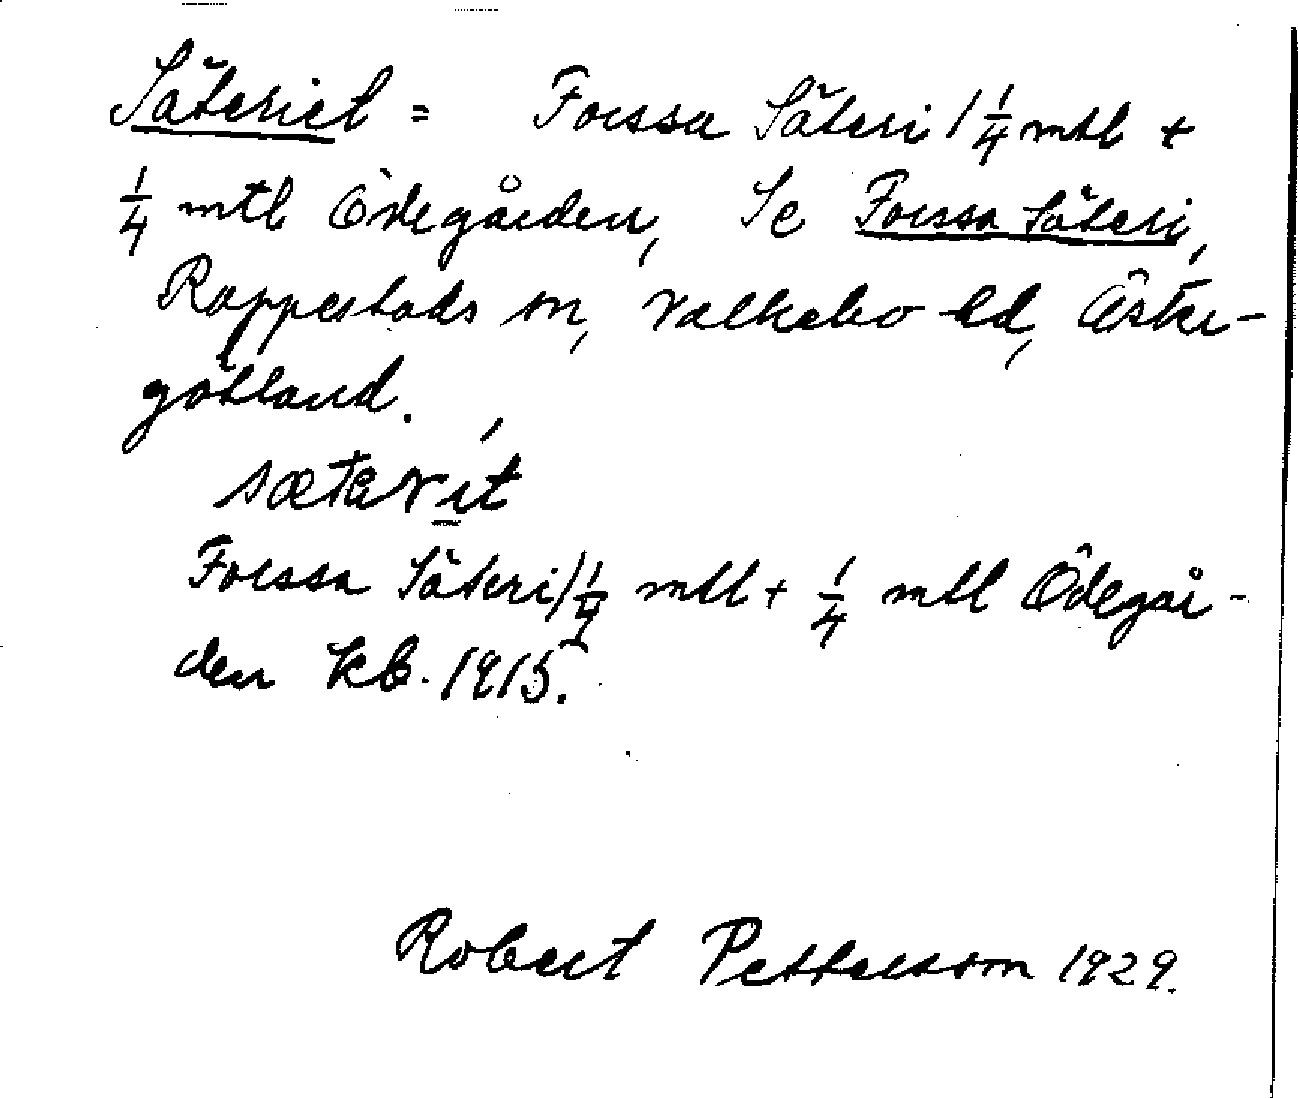 Säteriet = Forssa Säteri 1 1/4 mtl +
1/4 mtl Ödegården, Se Forssa Säteri,
Rappestads sn, Valkebo hd, Öster-
götland.
sætarit
Forssa Säteri 1 1/4 mtl + 1/4 mtl Ödegår-
den kb. 1915.
Robert Pettersson 1929.